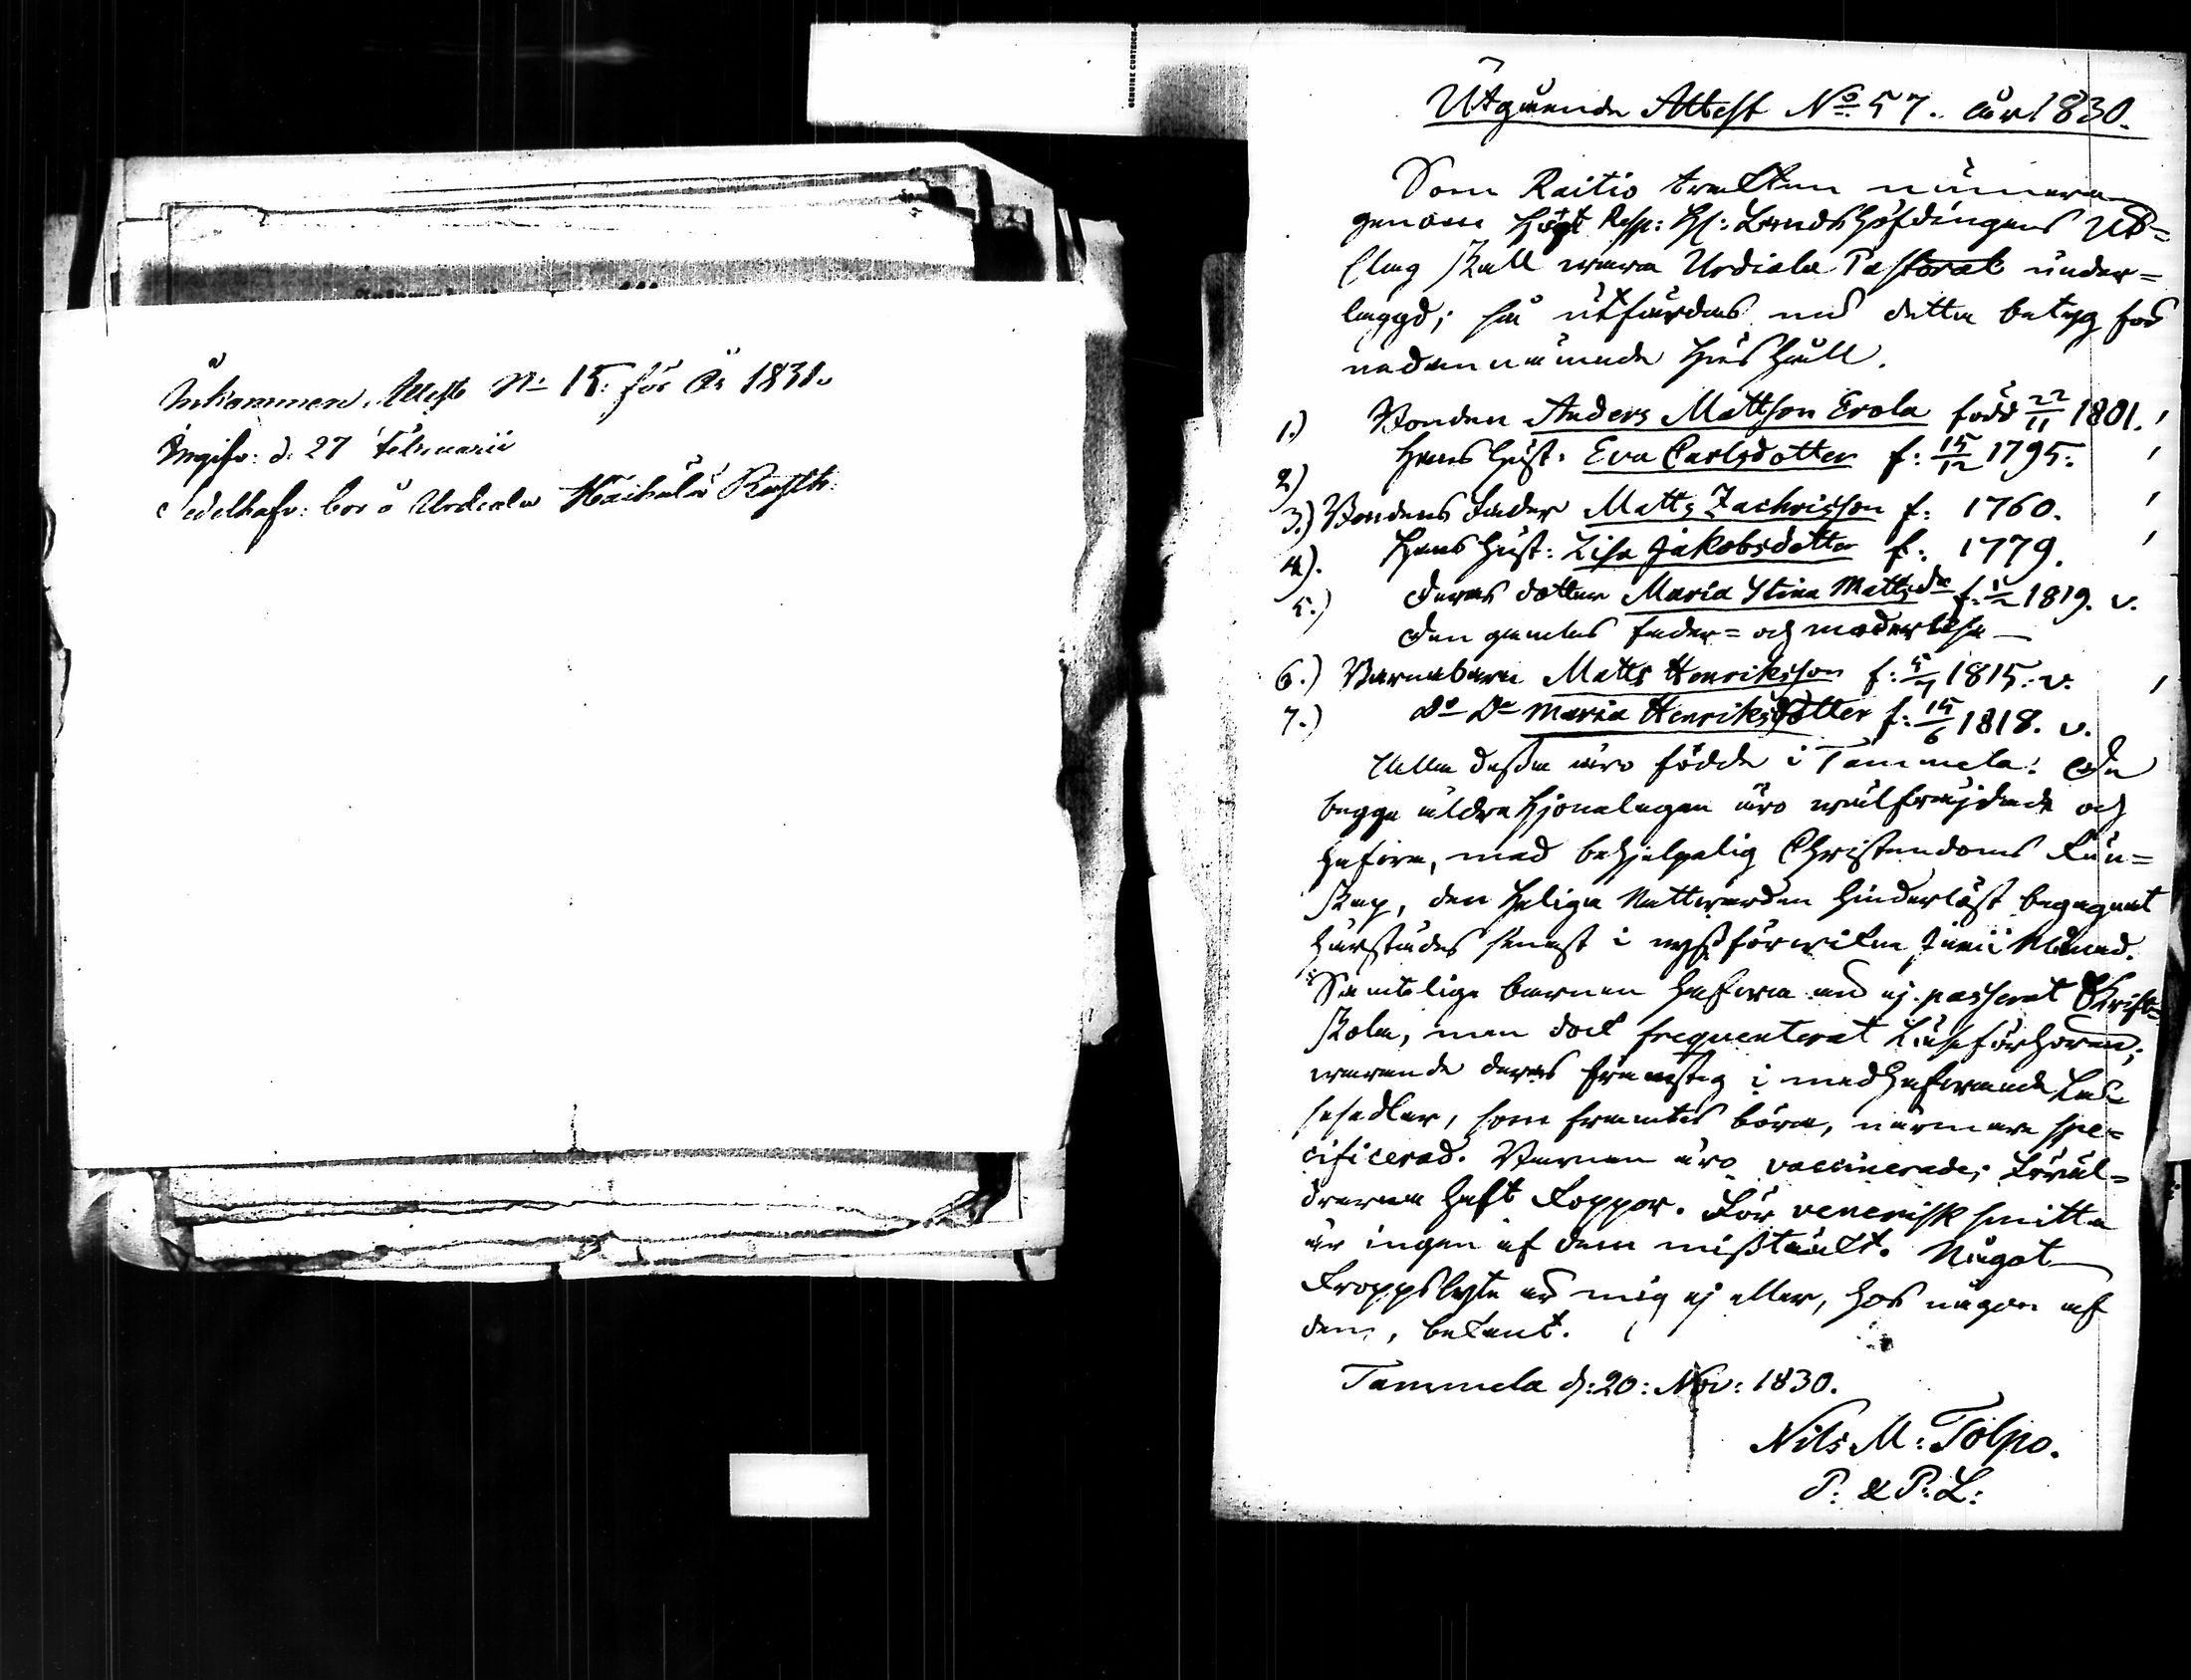 Inkommen Attest No 15: för år 1831.
Ingifv: d. 27 Februarii
Sedelhafv: bor å Urdiala Rusth:
GENUINE CURTRICH
Utgående Attest No 57. år 1830.
Som Raitio trakten numera
genom Högt Resp: Hr: Landshöfdingens Ut=
slag skall wara Urdiala Pastorat under=
laggd; så utfärdas nu detta betyg för
nedannämnde Hushåll.
1.) Bonden Anders Mattson Erola född 22/11 1801.
2) Hans Hust: Eva Carlsdotter f: 15/12 1795.
3.) Bondens Fader Matts Zachrisson f: 1760.
4). Hans Hust: Lisa Jakobsdotter f: 1779.
5.) Deras dotter Maria Stina Mattsdr f. 1819. v.
Den gamlas fader= och moderlösa
6.) Barnabarn Matts Henriksson f: 5/7 1815. v.
7.) do Do Maria Henriksdotter f: 15/6 1818. v.
Alla dessa äro födde i Tammela. De
begge äldre Hjonelagen äro wälfräjdade och
hafwa, med behjelpelig Christendoms kun=
skap, den Heliga Nattwarden hinderlöst begagnat
härstädes senast i nyssförwikne Junii Månad.
Samtelige barnen hafwa än ej passerat Skrift=
skola, men dock frequenterat Läseförhören;
warande deras framsteg i medhafwande Lä=
sesedlar, som framtes böra, närmare spe=
cificerad. Barnen äro vaccinerade; Föräl=
drarna haft koppor. För venerisk smitta
är ingen af dem misstänkt. Något
kroppslyte är mig ej eller, hos någon af
dem, bekant.
Tammela d: 20: Nov: 1830.
Nils M: Tolpo.
P: & P: L: